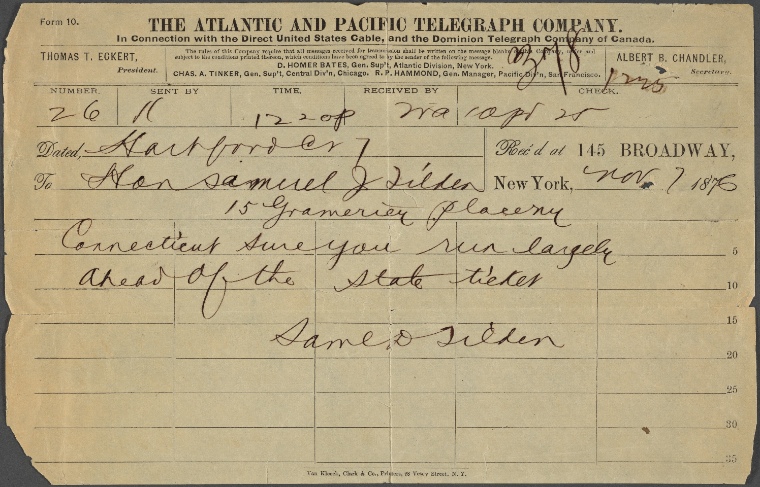 Form 10.
THE ATLANTIC AND PACIFIC TELEGRAPH COMPANY.
In Connection with the Direct United States Cable, and the Dominion Telegraph Company of Canada.
THOMAS T. ECKERT, President.
The rules of this Company require that all messages received for transmission shall be written on the message blanks of the Company, under and
subject to the conditions printed thereon, which conditions have been agreed to by the sender of the following message.
D. HOMER BATES, Gen. Sup't, Atlantic Division, New York.
CHAS. A. TINKER, Gen. Sup't, Central Div'n, Chicago. R. P. HAMMOND, Gen. Manager, Pacific Div'n, San Francisco.
ALBERT B. CHANDLER, Secretary.
NUMBER. SENT BY TIME. RECEIVED BY CHECK.
26 K 1220p
Dated, Hartford Ct 7 Rec'd at 145 BROADWAY,
To Hon Samuel J Tilden New York, Nov 7 1876
15 Gramercy
Connecticut sure you run largely
5
ahead of the state ticket
10
15
Saml D Tilden
20
25
30
35
Van Kleeck, Clark & Co., Printers, Vesey Street, N. Y.